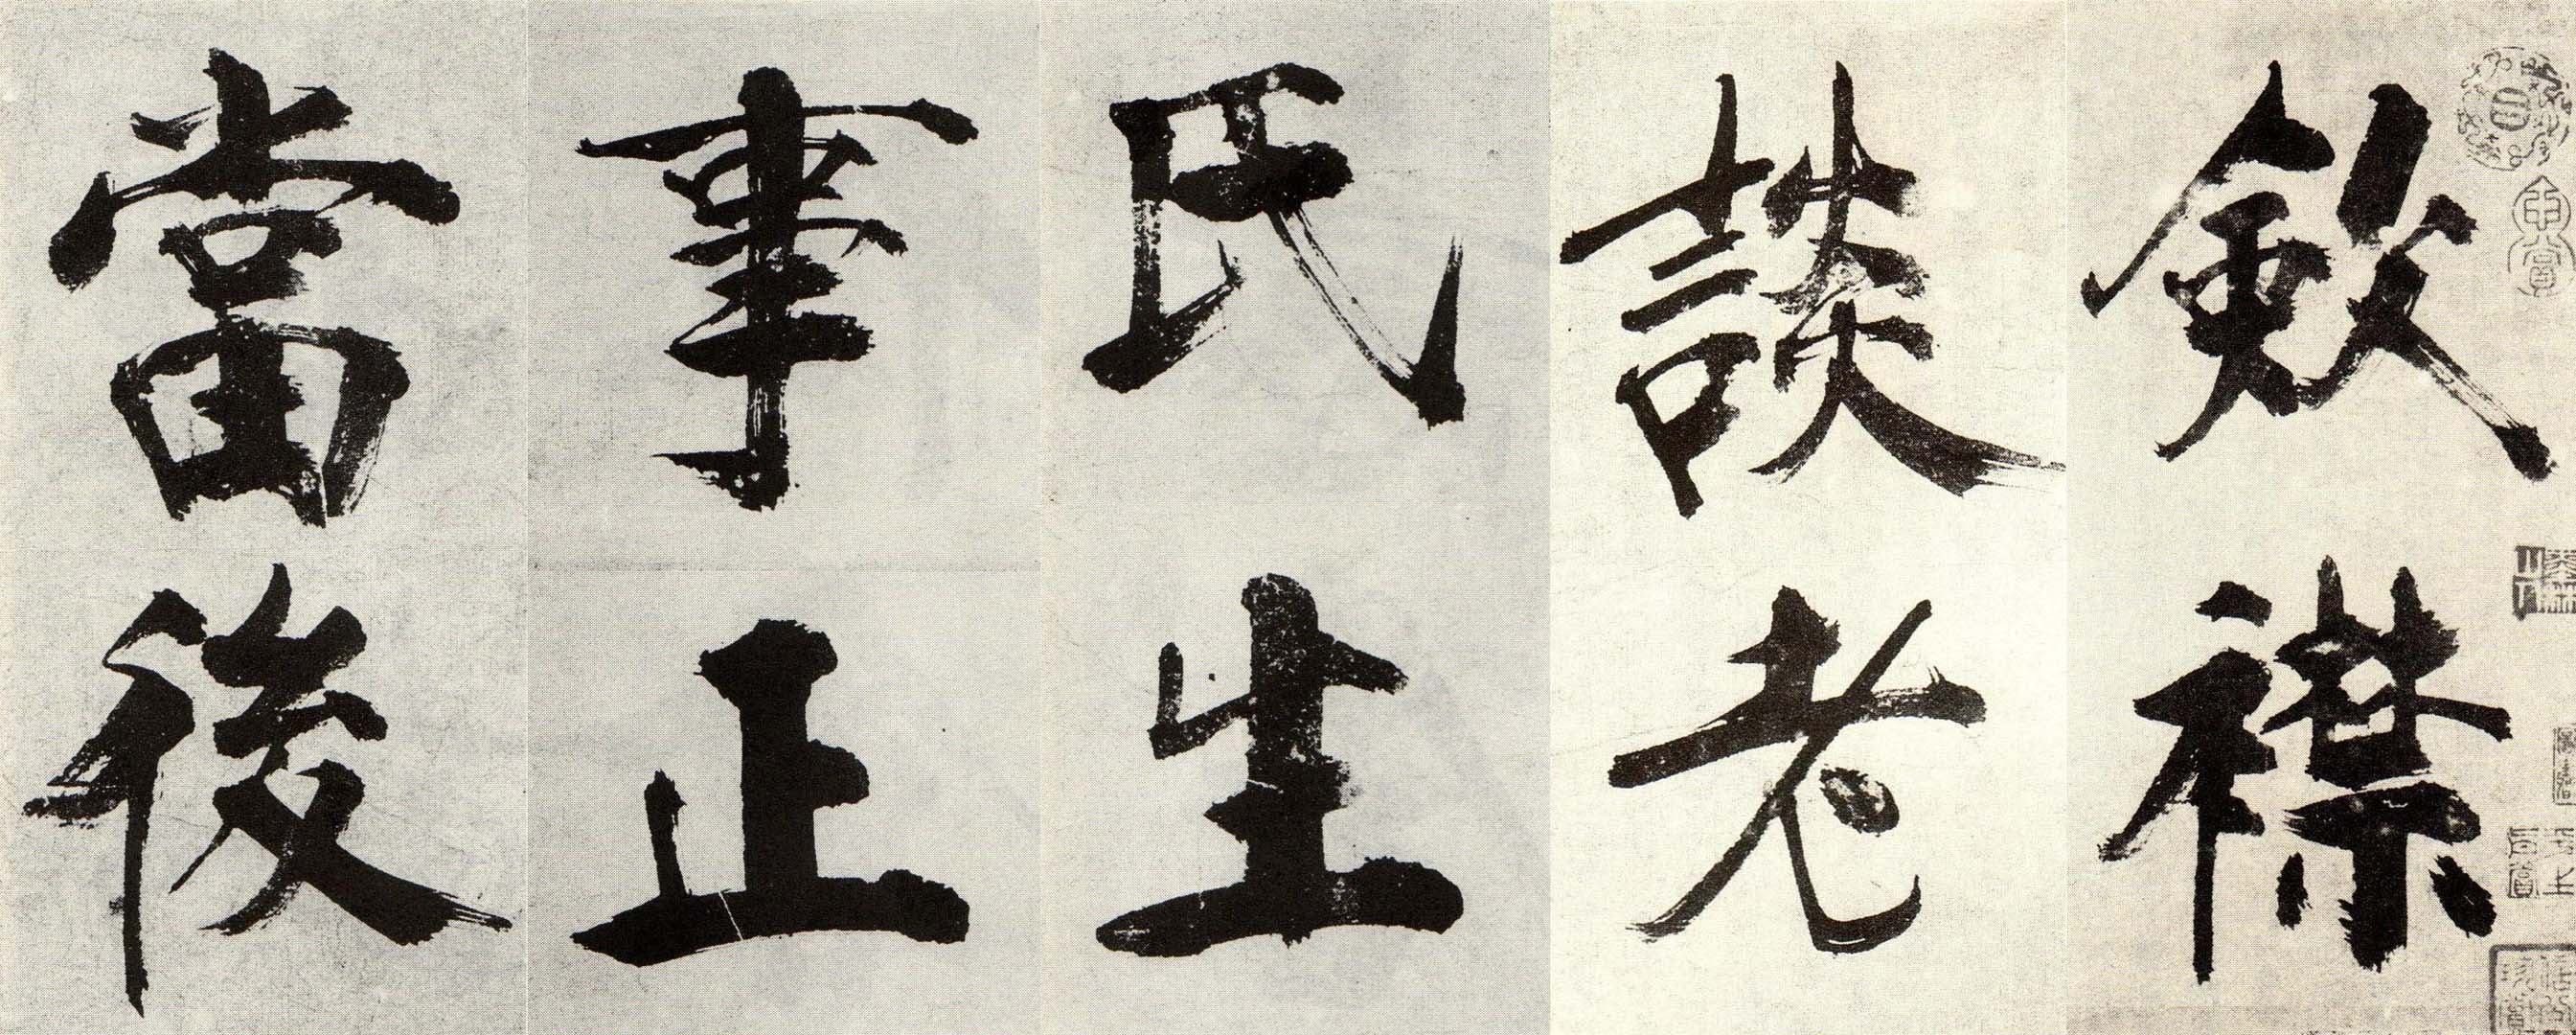 斂襟
談老
氏生
事正
當後